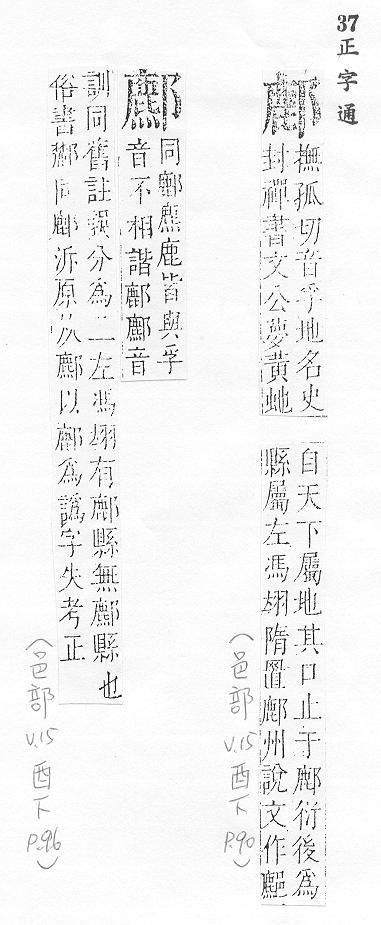 37正字通
鄜
撫孤切音孚地名史
封禪書文公夢黃虵
自天下屬地其口止于鄜衍後為
縣屬左馮翊隋置鄜州說文作
同鄜麃鹿皆與孚
音不相諧鄜音
訓同舊註誤分為二左馮翊有鄜縣無縣也
俗書同鄜泝原从以鄜為譌字失考正
(邑部 V.15 酉下 P.90)
(邑部 V.15 酉下 P.96)